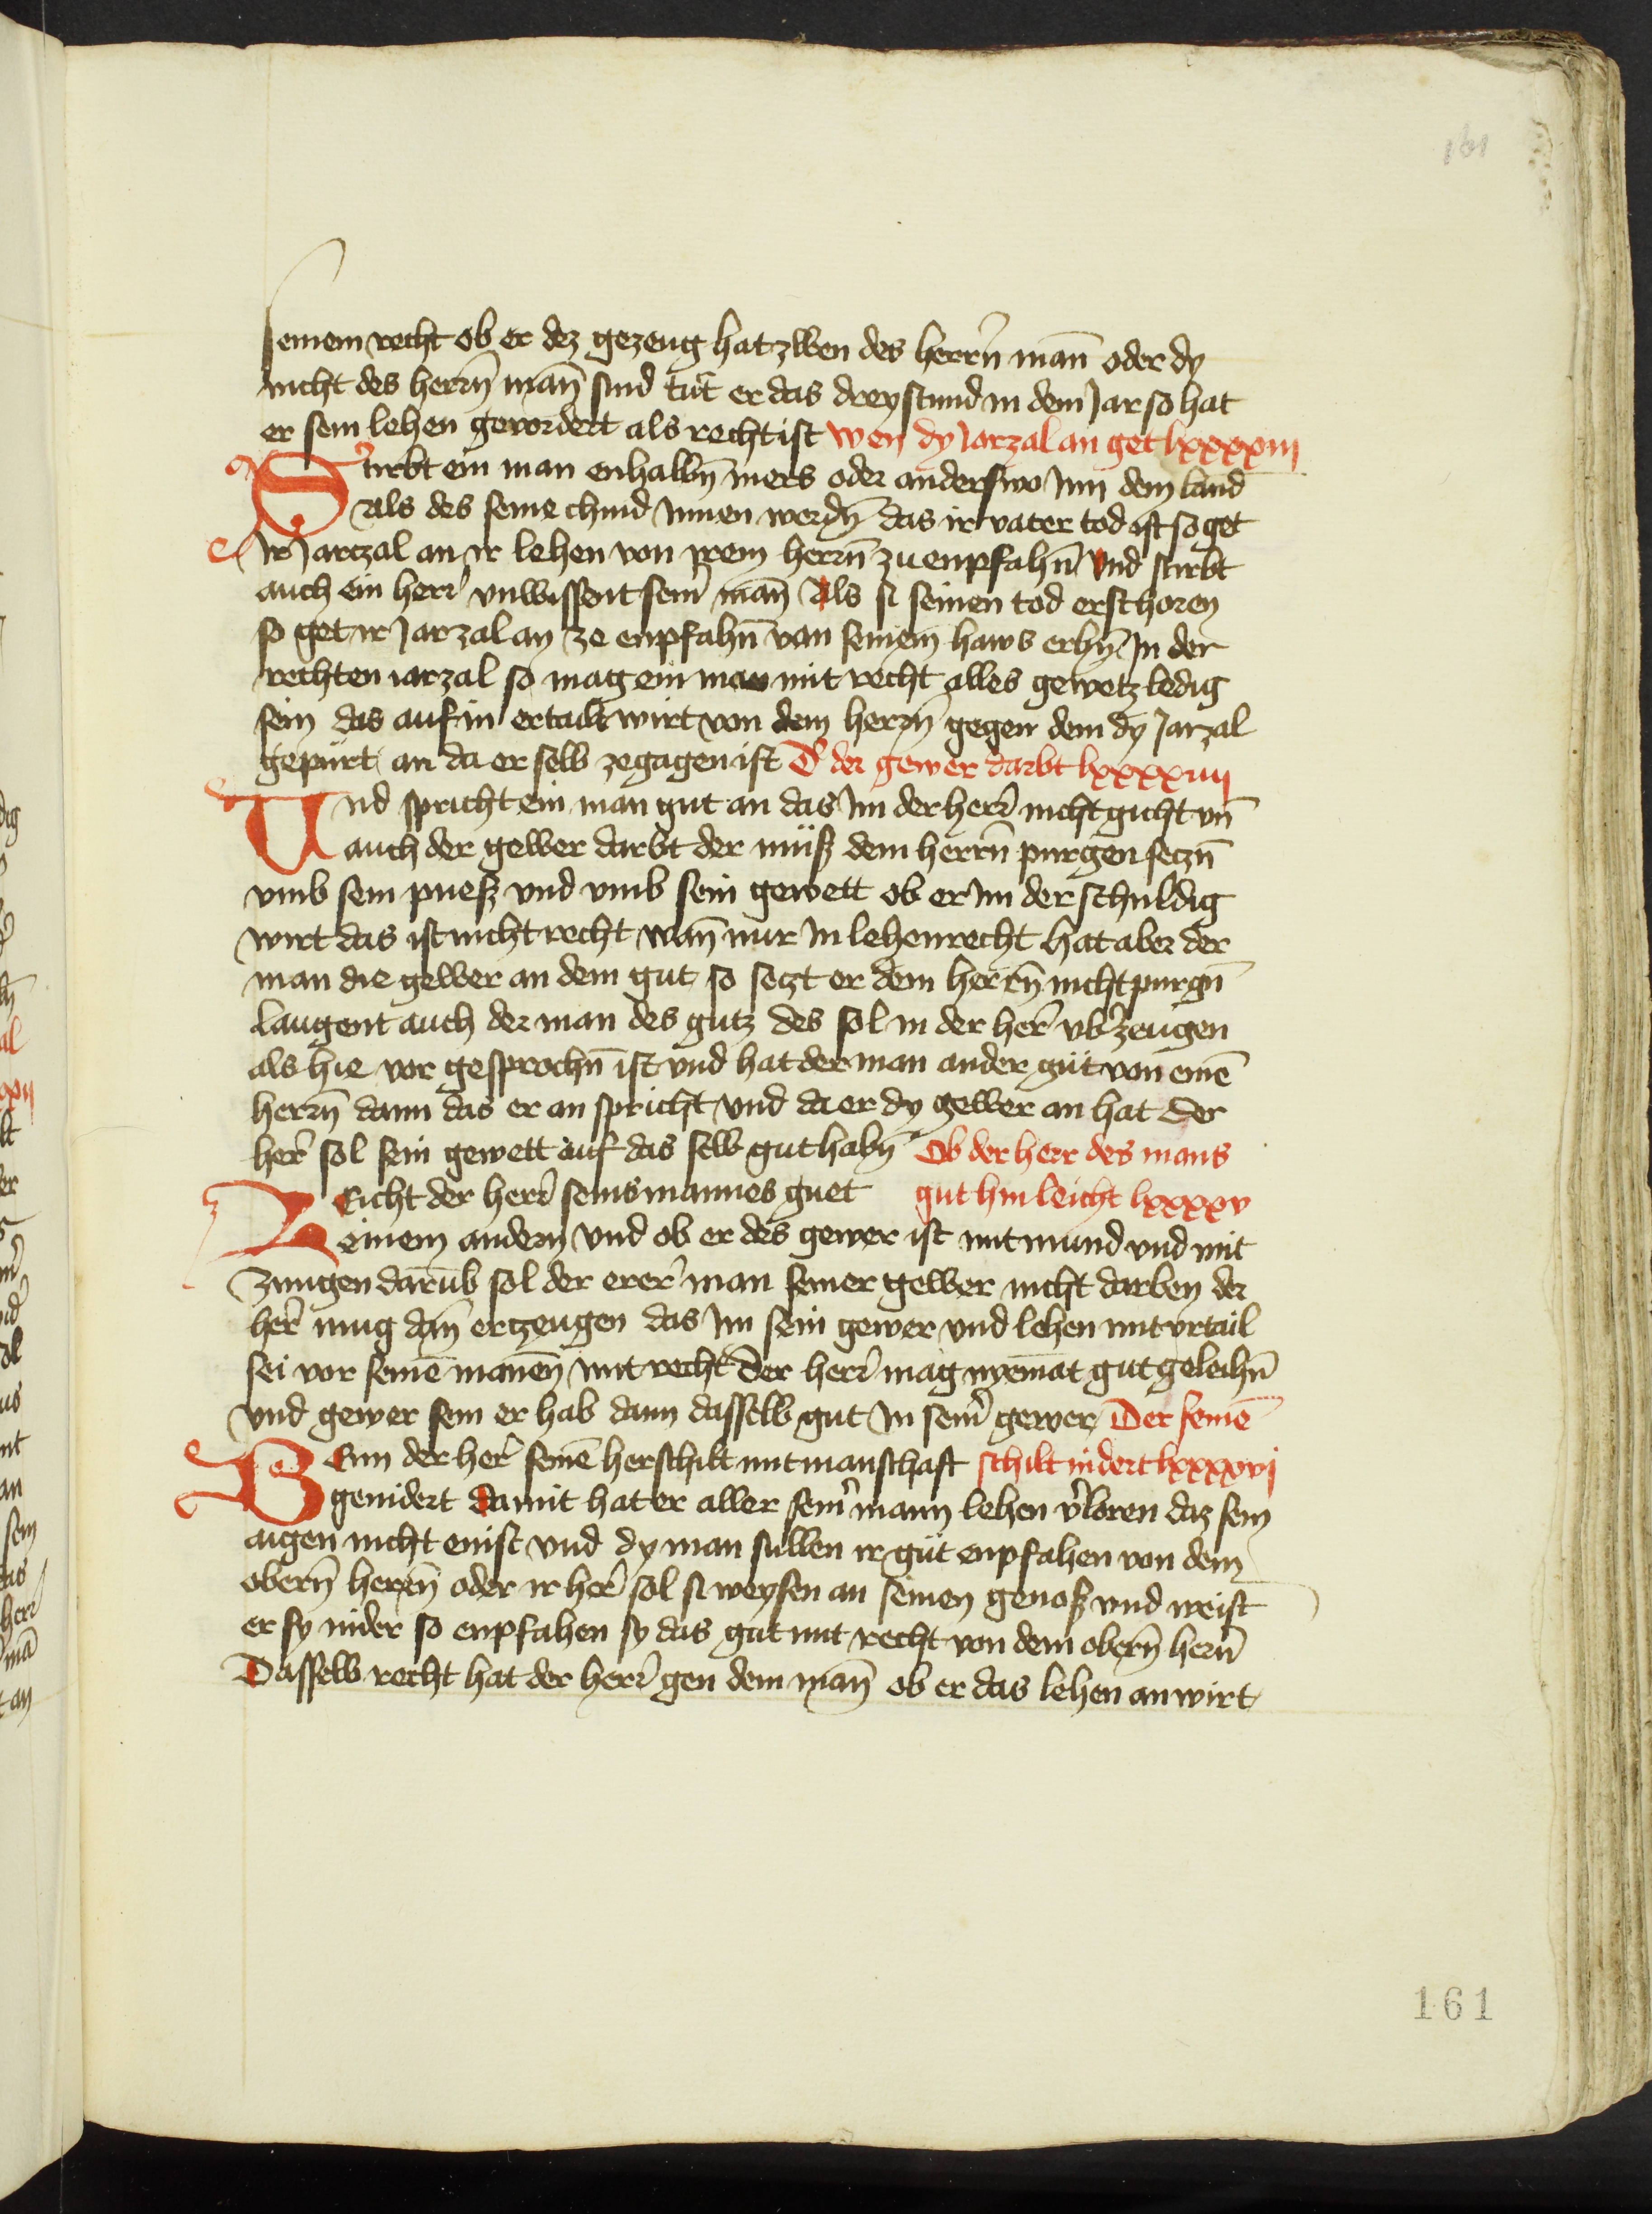 161
seinem recht ob er dez gezeug hat zwen des herrn̄ man̄ oder dy
nicht des herrn̄ man̄ sind tut er das drey stund in dem Jar so hat
er sein lehen gevordert als recht ist wen dy Jarzal an get lxxxxiij
Stirbt ein man enhalbn̄ mers oder anderswo Inn dem land
Als des seine chind Innen werdn̄ das ir vater tod ist so get
Ir Jarczal an ir lehen von irem herrn̄ zu enpfahn̄ Und stirbt
auch ein herr vnwissent seinˀ man̄ Als si seinen tod erschoren
so get ir Jarzal an ze enpfahn̄ von seinem haws erbn̄ In der
rechten iarzal so mag ein man mit recht alles gewetz ledig
sein das auf in ertailt wirt von dem herrn̄ gegen dem dy Jarzal
gepürt an da er selb zegagen ist Dˀ der gewer darbt lxxxxiiij
Und spricht ein man gut an das Im der herˀ nicht gicht vn̄
auch der gewer darbt der müß dem herrn̄ purgen seczn̄
vmb sein pueß vnd vmb sein gewett ob er Im der schuldig
wirt das ist nicht recht wan̄ nur In lehenrecht hat aber der
man die gewer an dem gut so seczt er dem herrn̄ nicht purgn̄
laugent auch der man des gutz des sol in der herˀ vbˀzeugen
als hie vor gesprochn̄ ist vnd hat der man ander gut von eine̅
herrn̄ dann das er an spricht vnd da er dy gewer an hat der
herˀ sol sein gewett auf das selb gut habn̄ Ob der herr des mans
Leicht der herˀ seins mannes guet gut hin leicht lxxxxv
einem andern vnd ob er des gewer ist mit mund vnd mit
zungen darūb sol der ererˀ man seiner gewer nicht darben der
herˀ mug dan̄ erczeugen das Im sein gewer vnd lehen mit vrtail
sei vor seine̅ manen̄ mit recht Der herˀ mag nyemāt gut geleihn̄
vnd gewer sein er hab dann dasselb gut In seinˀ gewer Der seine̅
Wenn der herˀ seine̅ herschilt mit manschaft schilt nidert lxxxxvj
genidert damit hat er aller seinˀ mann lehen vˀloren daz sein
aigen nicht enist vnd dy man sullen ir gut enpfahen von dem
obern̄ herrn̄ oder ir herˀ sol si weysen an seinen genoß vnd weist
er sy nider so enpfahen sy das gut mit recht von dem obern̄ hern̄
Dasselb recht hat der herˀ gen dem man̄ ob er das lehen anwirt
161